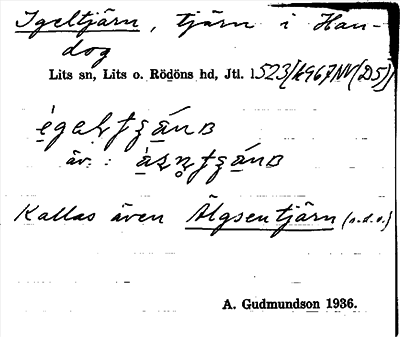 Igeltjärn, tjärn i Han-
dog
Lits sn, Lits o. Rödöns hd, Jtl. 1523[1967NV(D5)]
äv. :
Kallas även Älgsentjärn (s.d.o.)
A. Gudmundson 1936.